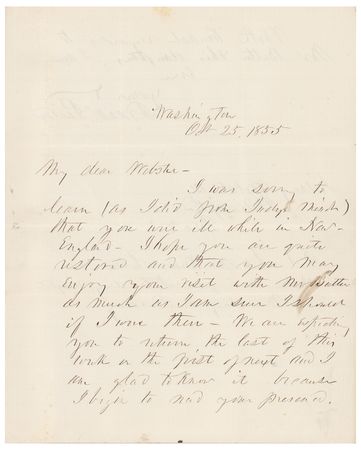 Washington
Oct 25, 1855
My dear Webster -
I was sorry to
learn (as I did from Judge
that you were ill while in New-
England - I hope you are quite
restored and that you may
enjoy your visit with Mr Butler
as much as I am sure I should
if I were there - We are expecting
you to return the last of this
week or the first of next and I
am glad to know it because
I begin to need your presence.